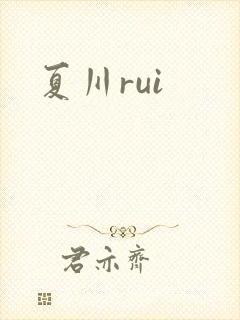 夏川rui
君亦齐